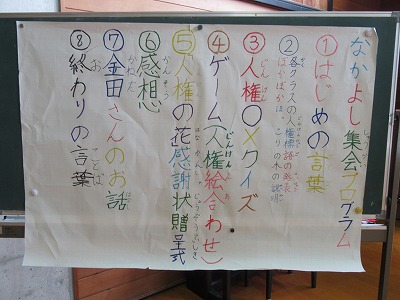 なかよし集会プログラム
①はじめの言葉
②各クラスの人権標語の発表
ほかぽかほっこりの木の説明
③人権〇×クイズ
④ゲーム(人権絵合わせ)
⑤人権の花感謝状贈呈式
⑥感想
⑦金田さんのお話
⑧終わりの言葉